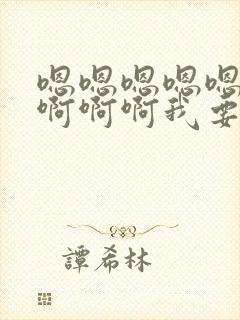 嗯嗯嗯嗯嗯
啊啊啊我要
譚希林